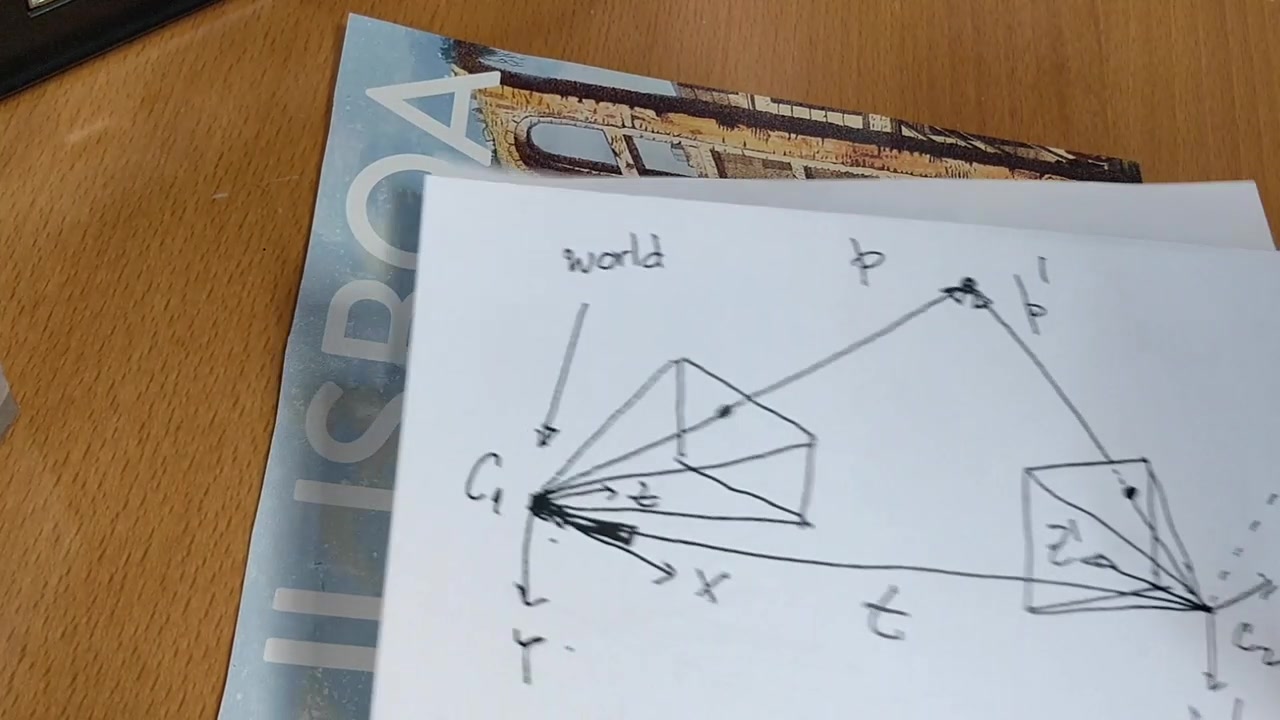 LISBOA
world
p
p'
C₁
z
X
Y
t
z'
C₂